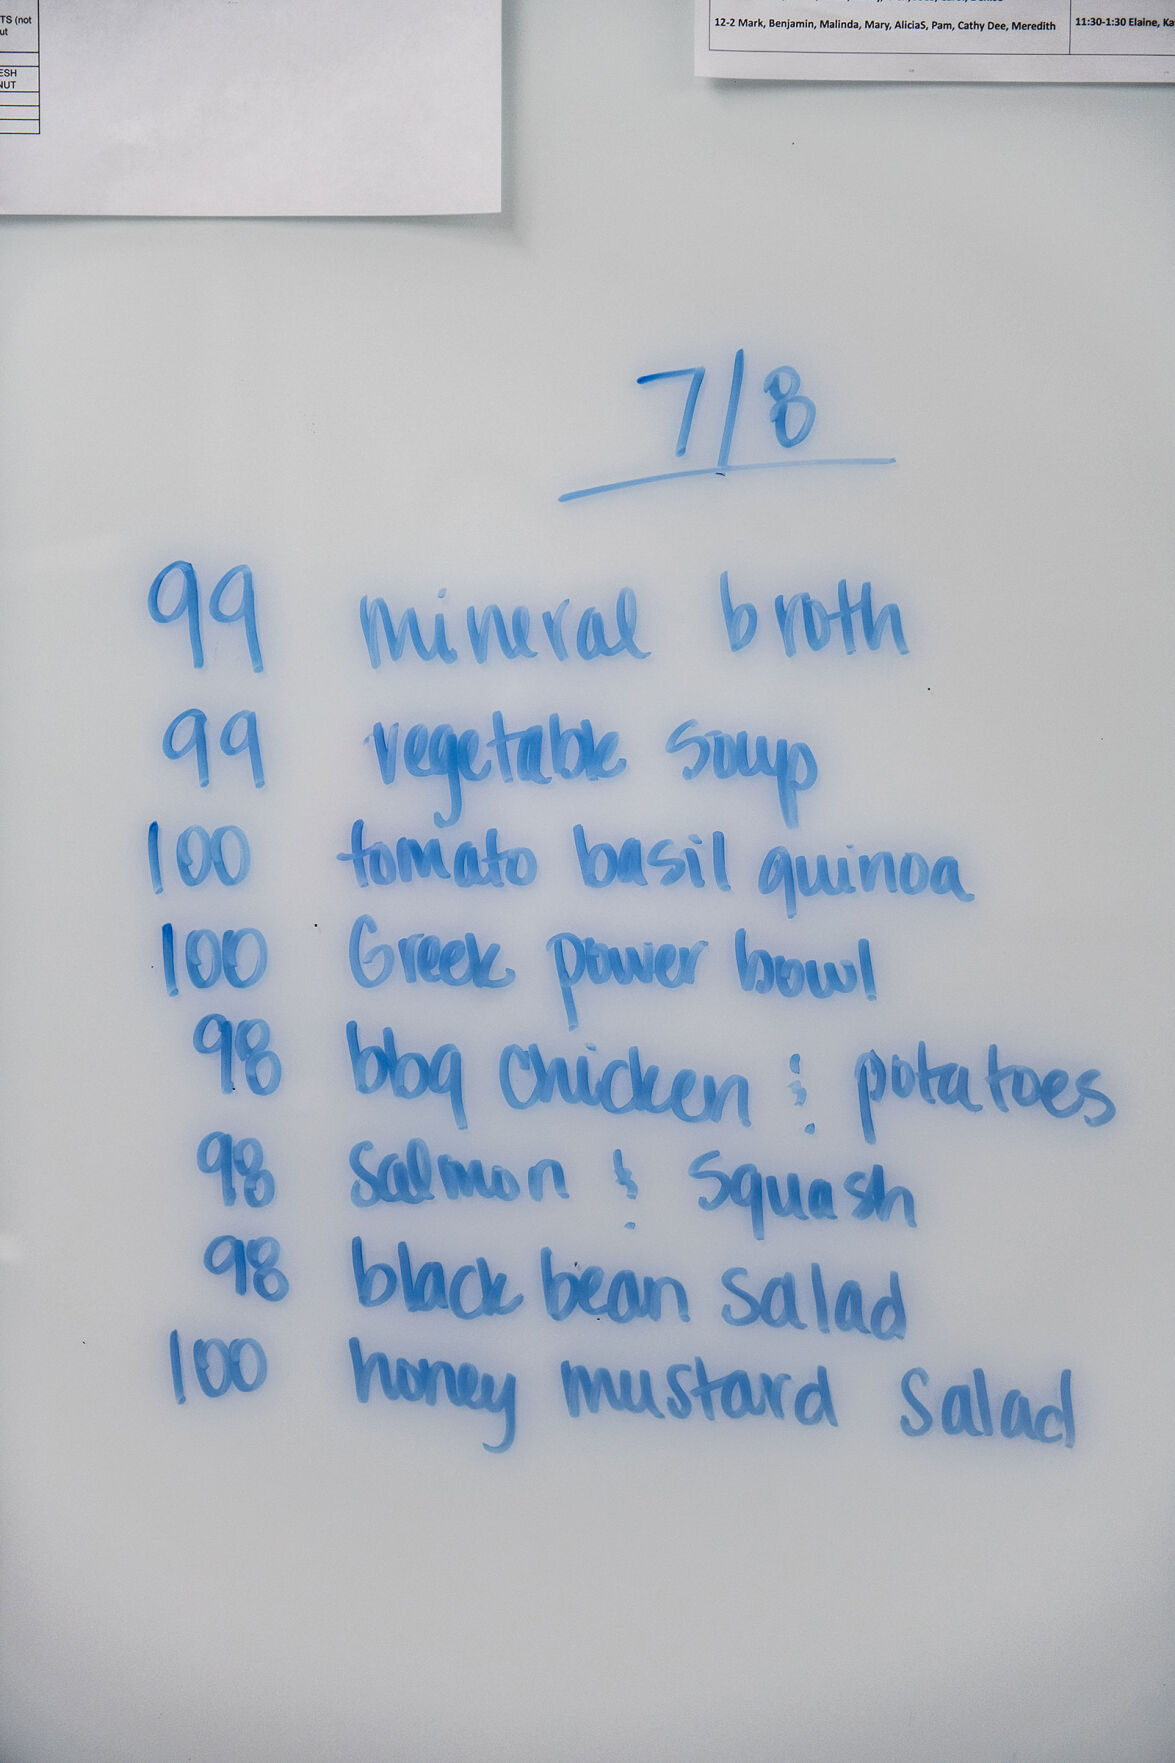 TS (not
ut
ESH
NUT
12-2 Mark, Benjamin, Malinda, Mary, AliciaS, Pam, Cathy Dee, Meredith
11:30-1:30 Elaine, Ka
7/8
99 mineral broth
99 vegetable soup
100 tomato basil quinoa
100 Greek power bowl
98 bbq chicken & potatoes
98 salmon & squash
98 black bean salad
100 honey mustard salad